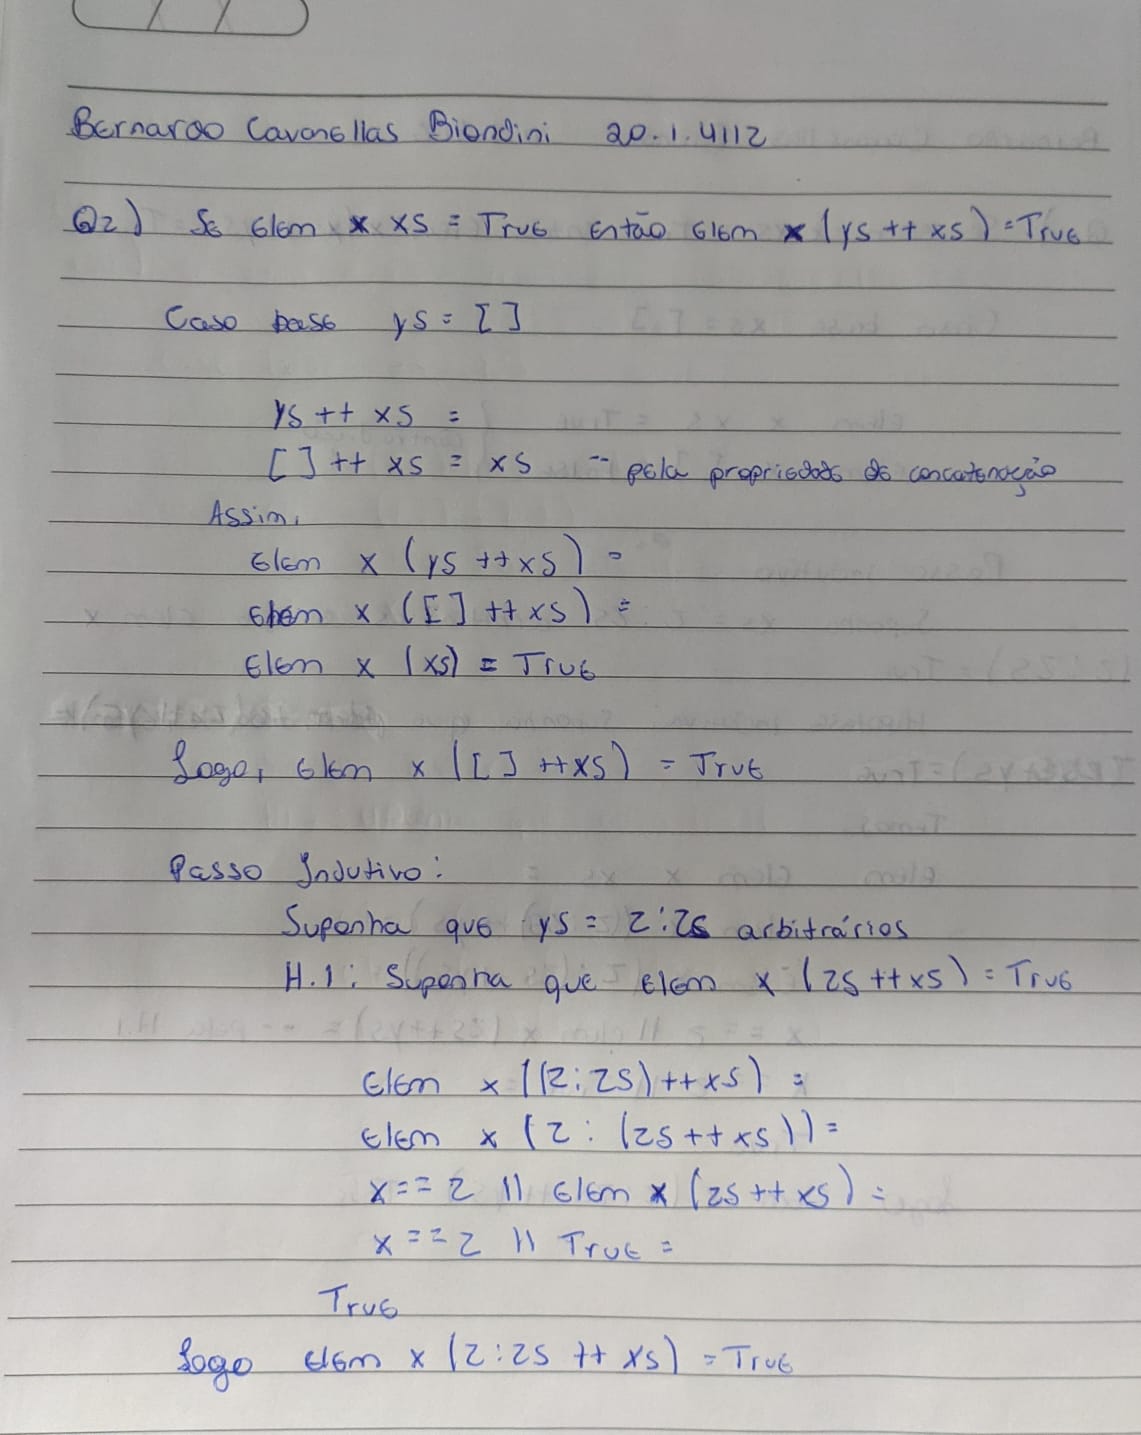 Bernardo Cavanellas Biondini 20.1.4112
Q2) Se elem x xs = True então elem x (ys ++ xs) = True
Caso base ys = []
ys ++ xs =
[] ++ xs = xs -- pela propriedade de concatenação
Assim,
elem x (ys ++ xs) =
elem x ([] ++ xs) =
elem x (xs) = True
Logo, elem x ([] ++ xs) = True
Passo Indutivo:
Suponha que ys = z:zs arbitrários
H.I: Suponha que elem x (zs ++ xs) = True
elem x ((z:zs) ++ xs) =
elem x (z : (zs ++ xs)) =
x == z || elem x (zs ++ xs) =
x == z || True =
True
Logo elem x (z:zs ++ xs) = True